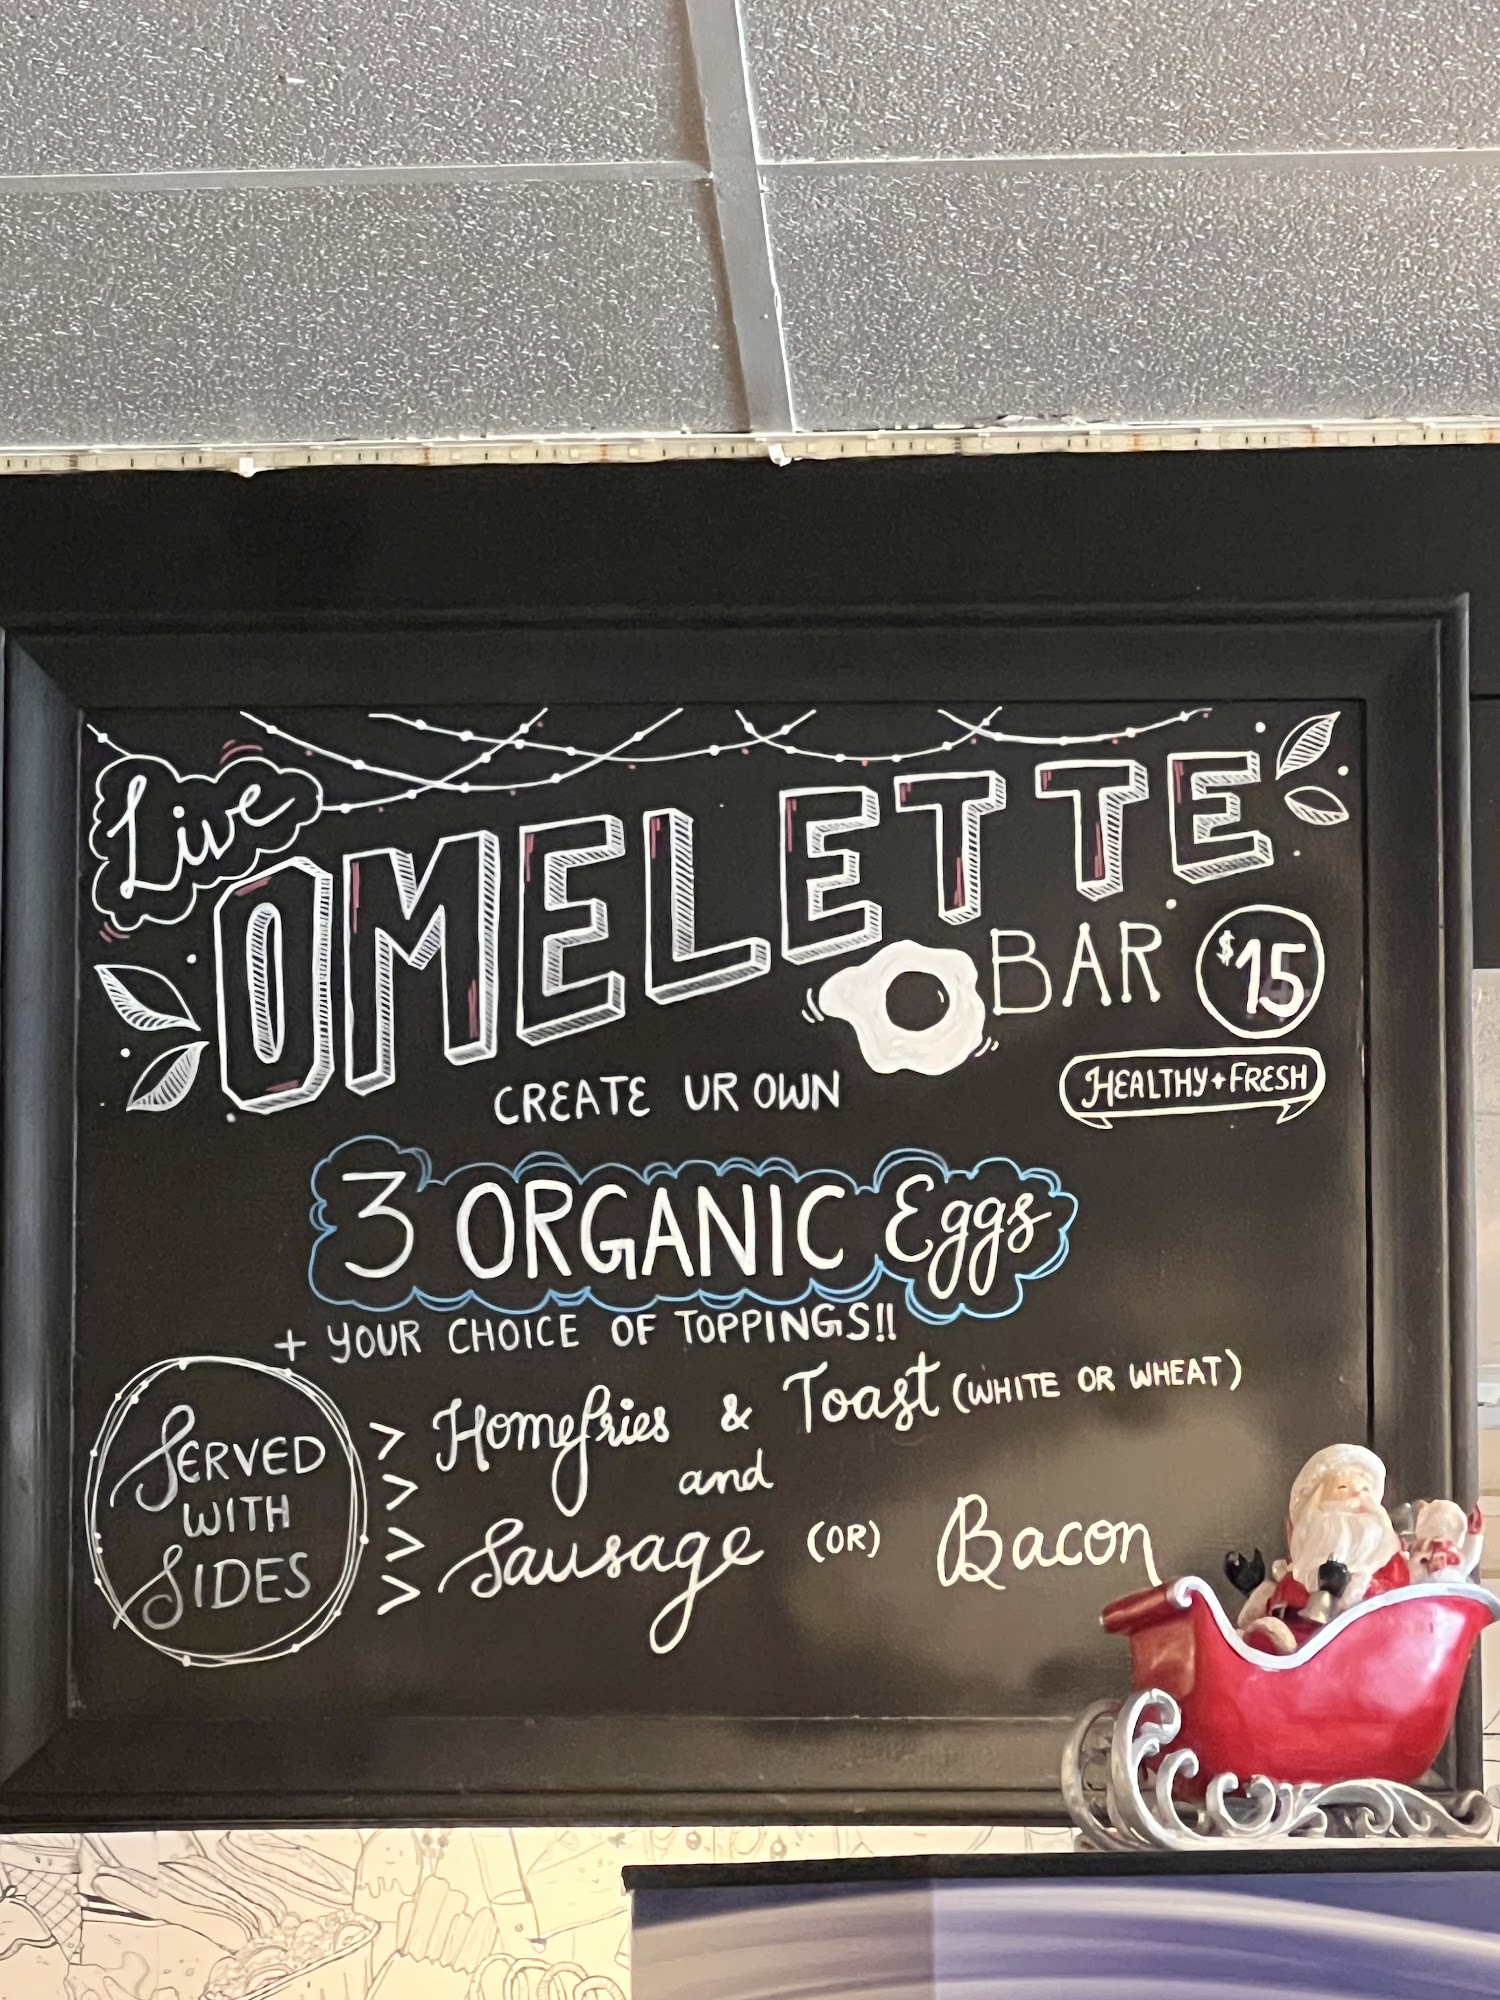 Live
OMELETTE
BAR
$15
CREATE UR OWN
HEALTHY + FRESH
3 ORGANIC Eggs
+ YOUR CHOICE OF TOPPINGS!!
SERVED
WITH
SIDES
> Homefries & Toast (WHITE OR WHEAT)
> and
> Sausage (OR) Bacon
>